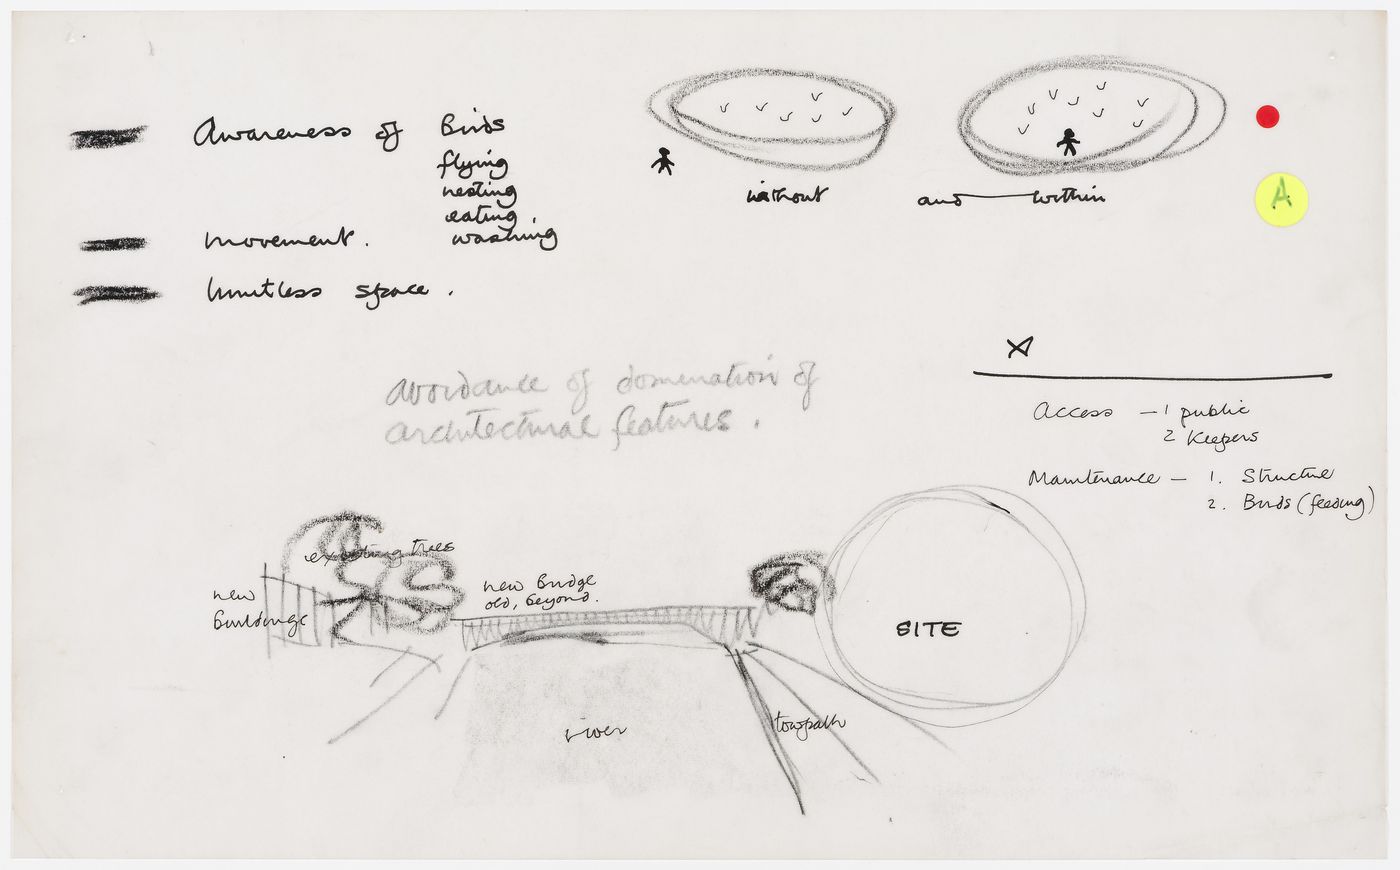 Awareness of Birds
flying
nesting
eating.
washing
movement.
limitless space.
without and within
A
avoidance of domination of
architectural features.
Access - 1 public
2 Keepers
Maintenance - 1. Structure
2. Birds (feeding)
existing trees
new
buildings
new Bridge
old, beyond.
SITE
river
towpath